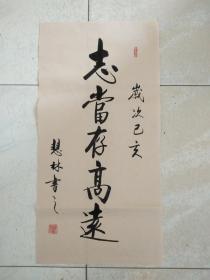 歲次己亥
志當存高遠
慧林書之